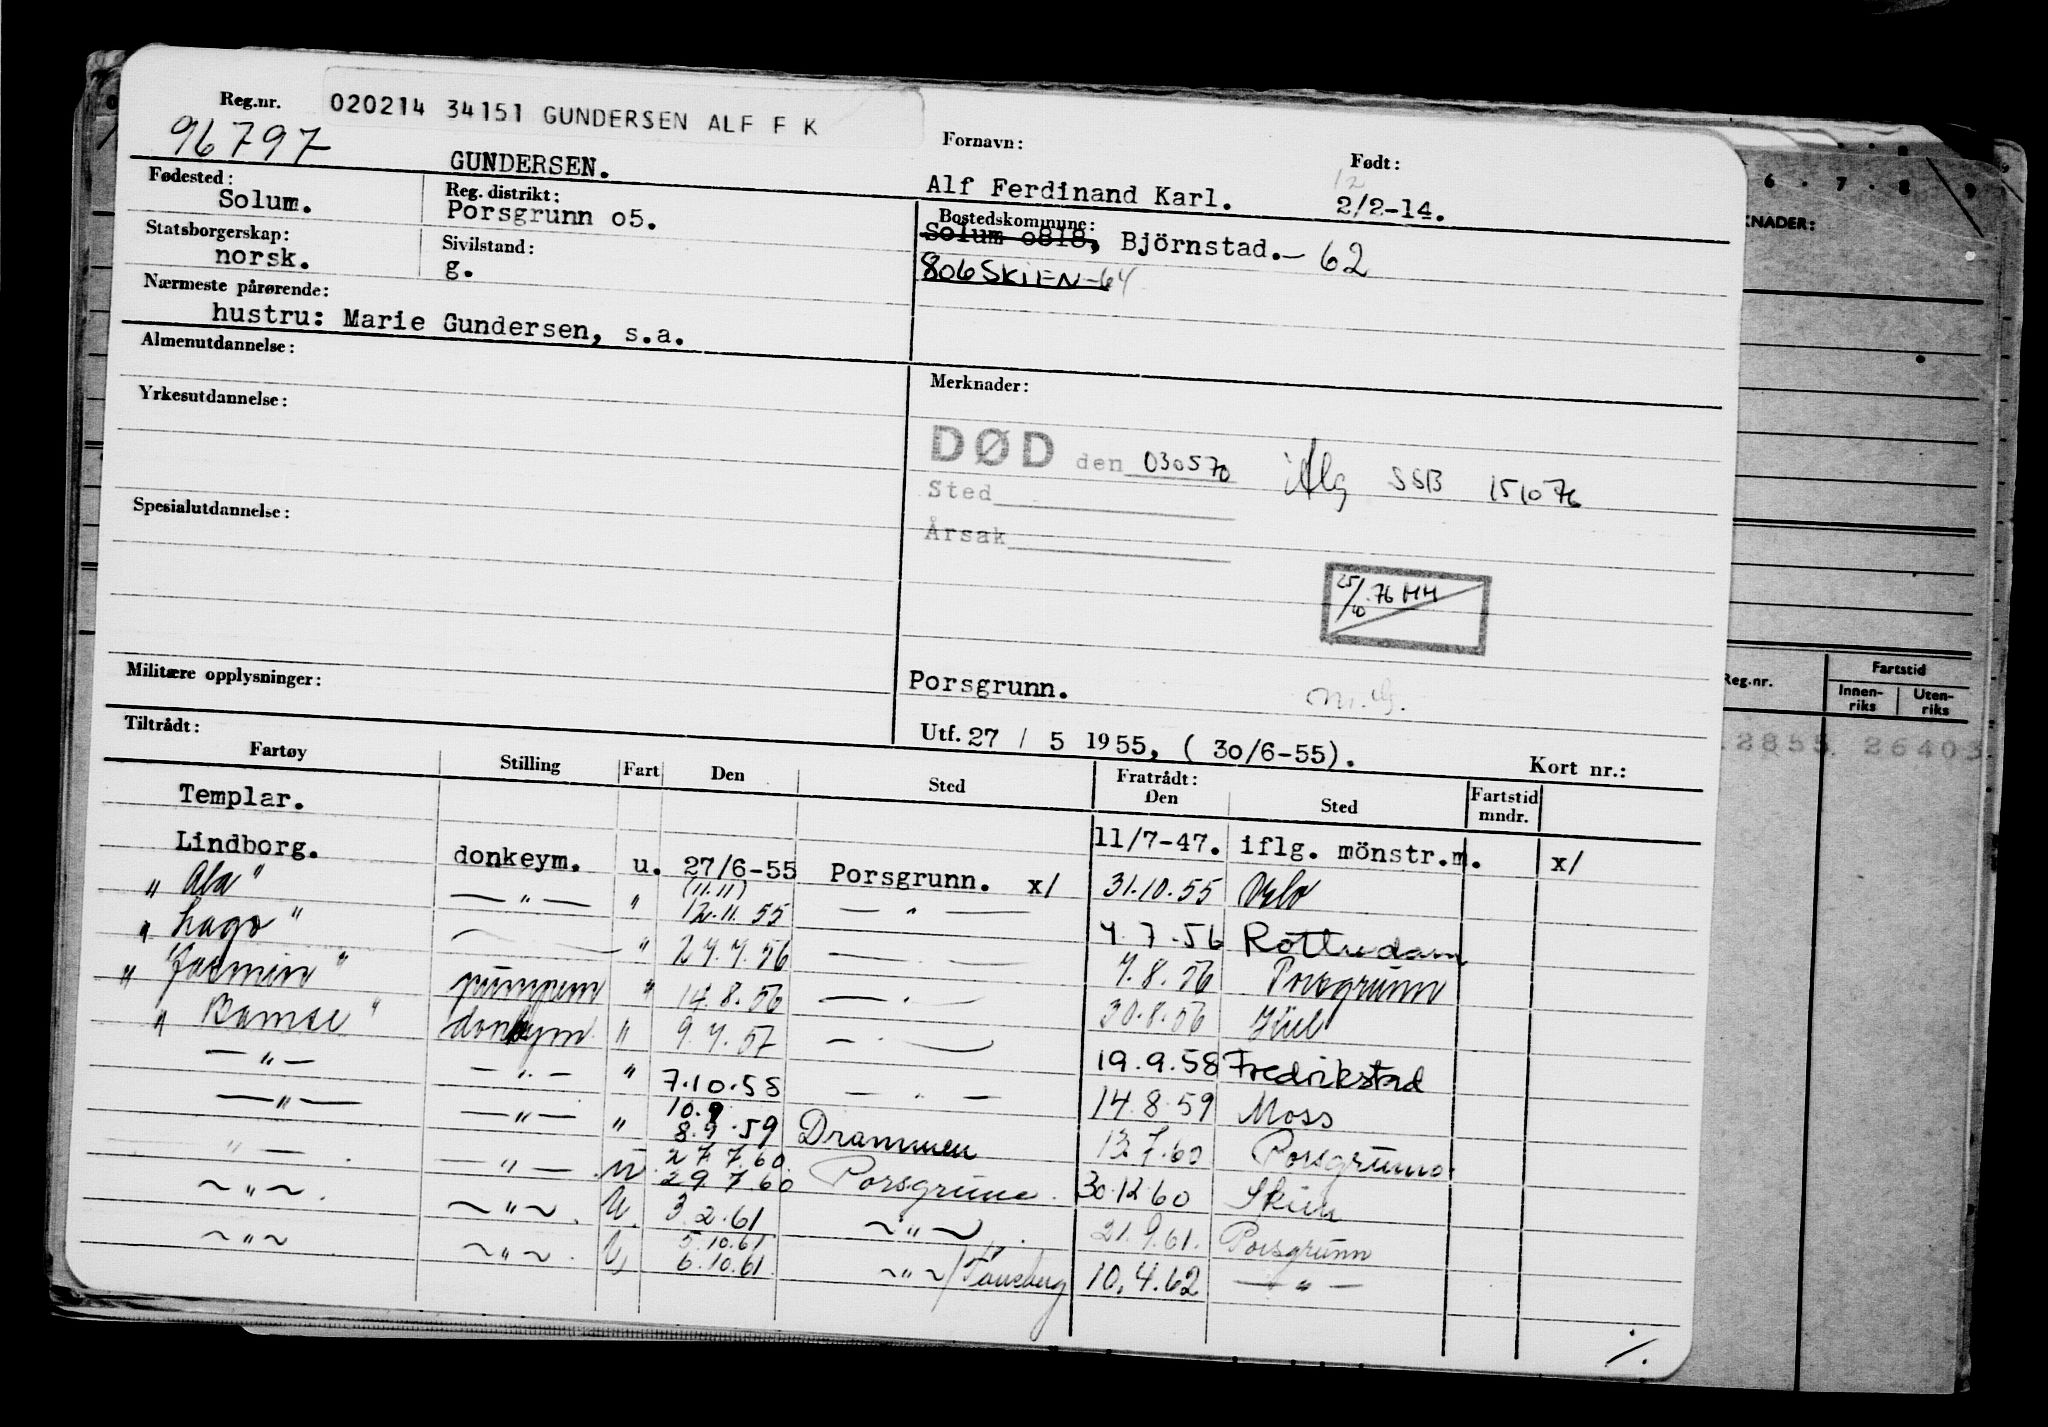 Reg.nr. 020214 34151 GUNDERSEN ALF F K
96797 GUNDERSEN.
Fornavn: Født:
Alf Ferdinand Karl. 12
2/2-14.
Fødested: Reg. distrikt: Bostedskommune:
Solum. Porsgrunn o5. Solum o818, Björnstad.- 62
Statsborgerskap: Sivilstand:
norsk. g. 806 SKIEN -64
Nærmeste pårørende:
hustru: Marie Gundersen, s.a.
Almenutdannelse:
Yrkesutdannelse:
Spesialutdannelse:
Militære opplysninger:
Merknader:
DØD den 030570 iflg SSB 151076
Sted
Årsak
25/10 .76 HH
Porsgrunn.
Utf. 27 / 5 1955, ( 30/6-55). Kort nr.:
Tiltrådt: Fratrådt:
Fartøy Stilling Fart Den Sted Den Sted Fartstid mndr.
Templar. 11/7-47. iflg. mönstr.m. x/
Lindborg. donkeym. u. 27/6-55 Porsgrunn. x/ 31.10.55 Oslo
" Ala " — " — " (11.11) 12.11.55 — " — 4.7.56 Rotterdam
" Lago " " 24.7.56 — 7.8.56 Porsgrunn
" Jasmin " pumpem " 14.8.56 — " — 30.8.56 Kiel
" Bamse " donkeym. " 9.4.57 — " — 19.9.58 Fredrikstad
— " — — " — " 7.10.58 — " — 14.8.59 Moss
— " — — " — " 10.9 8.9.59 Drammen 13.7.60 Porsgrunn
" — — " — u. 27.7.60 29.7.60 Porsgrunn. 30.12.60 Skien
~ " ~ . ~ " ~ . U. 3.2.61 ~ " ~ . 21.9.61. Porsgrunn
~ " ~ ~ " ~ . U, 5.10.61 6.10.61. ~ " ~ / Tønsberg 10.4.62 — " —
./.
6 . 7 . 8 9
KNADER:
Reg.nr. Fartstid
Innen-riks Uten-riks
2855. 26403